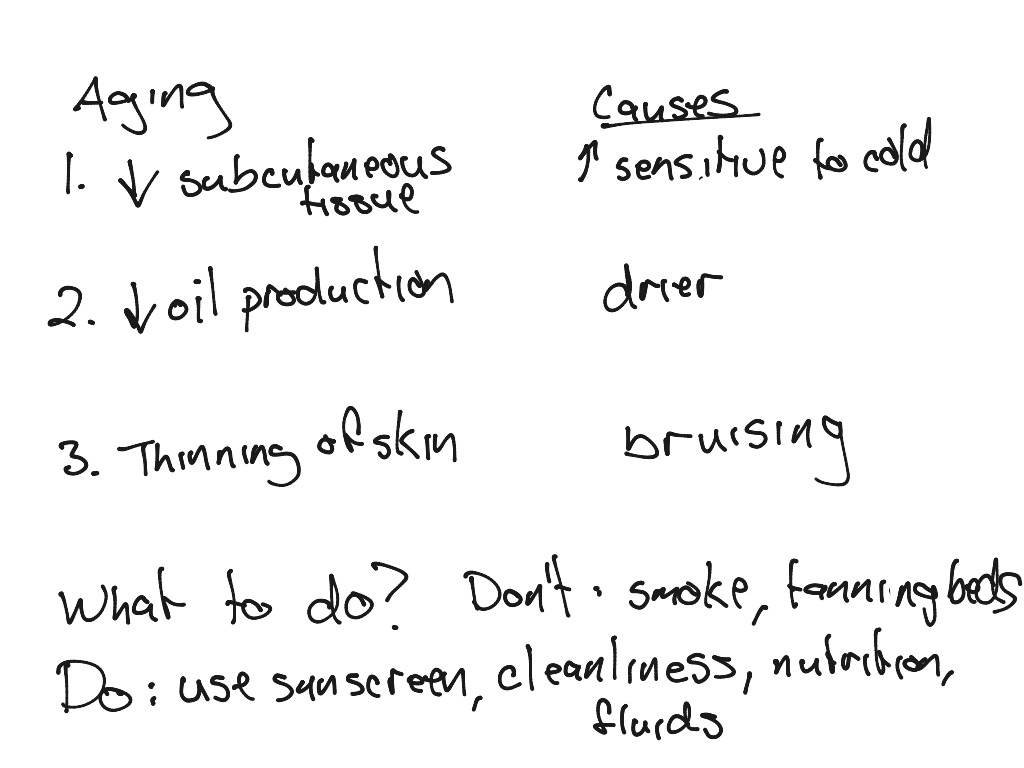 Aging Causes
1. ↓ subcutaneous ↑ sensitive to cold
tissue
2. ↓ oil production drier
3. Thinning of skin bruising
What to do? Don't: smoke, tanning beds
Do: use sunscreen, cleanliness, nutrition,
fluids